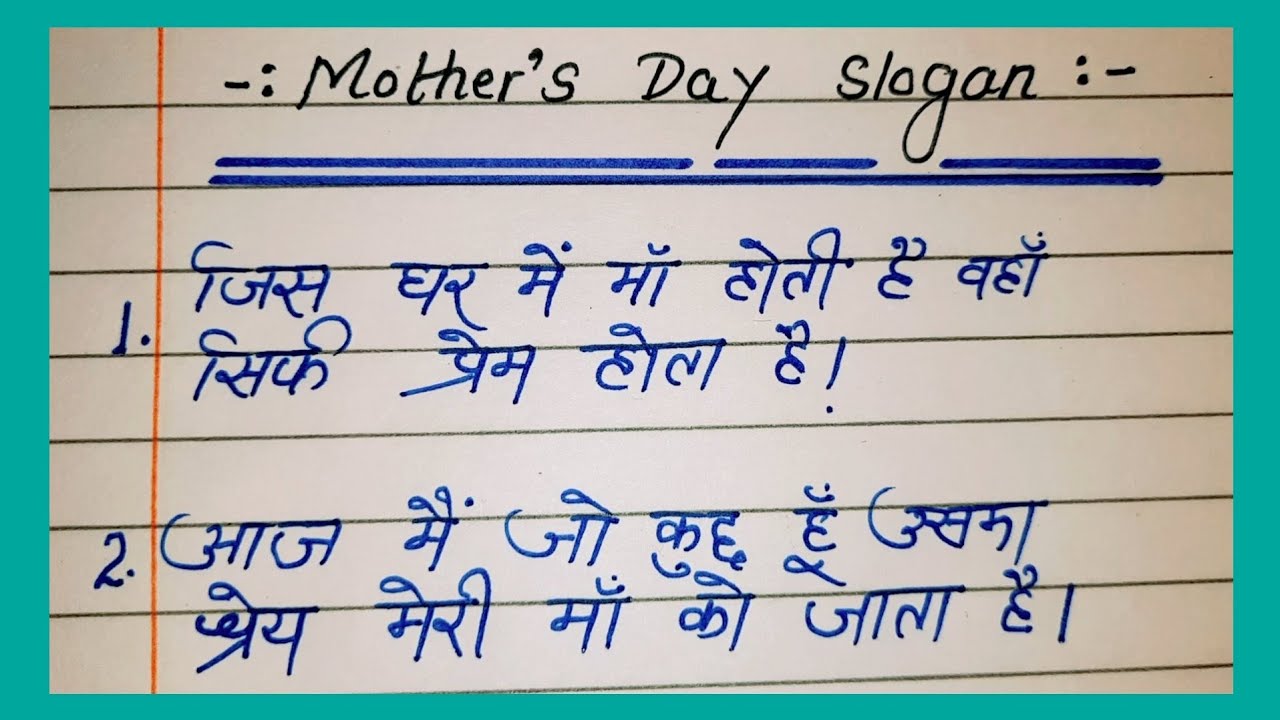 -: Mother's Day Slogan :-
जिस घर में माँ होती है वहाँ
1.
सिर्फ प्रेम होता है।
2. आज मैं जो कुछ हूँ उसका
श्रेय मेरी माँ को जाता है।